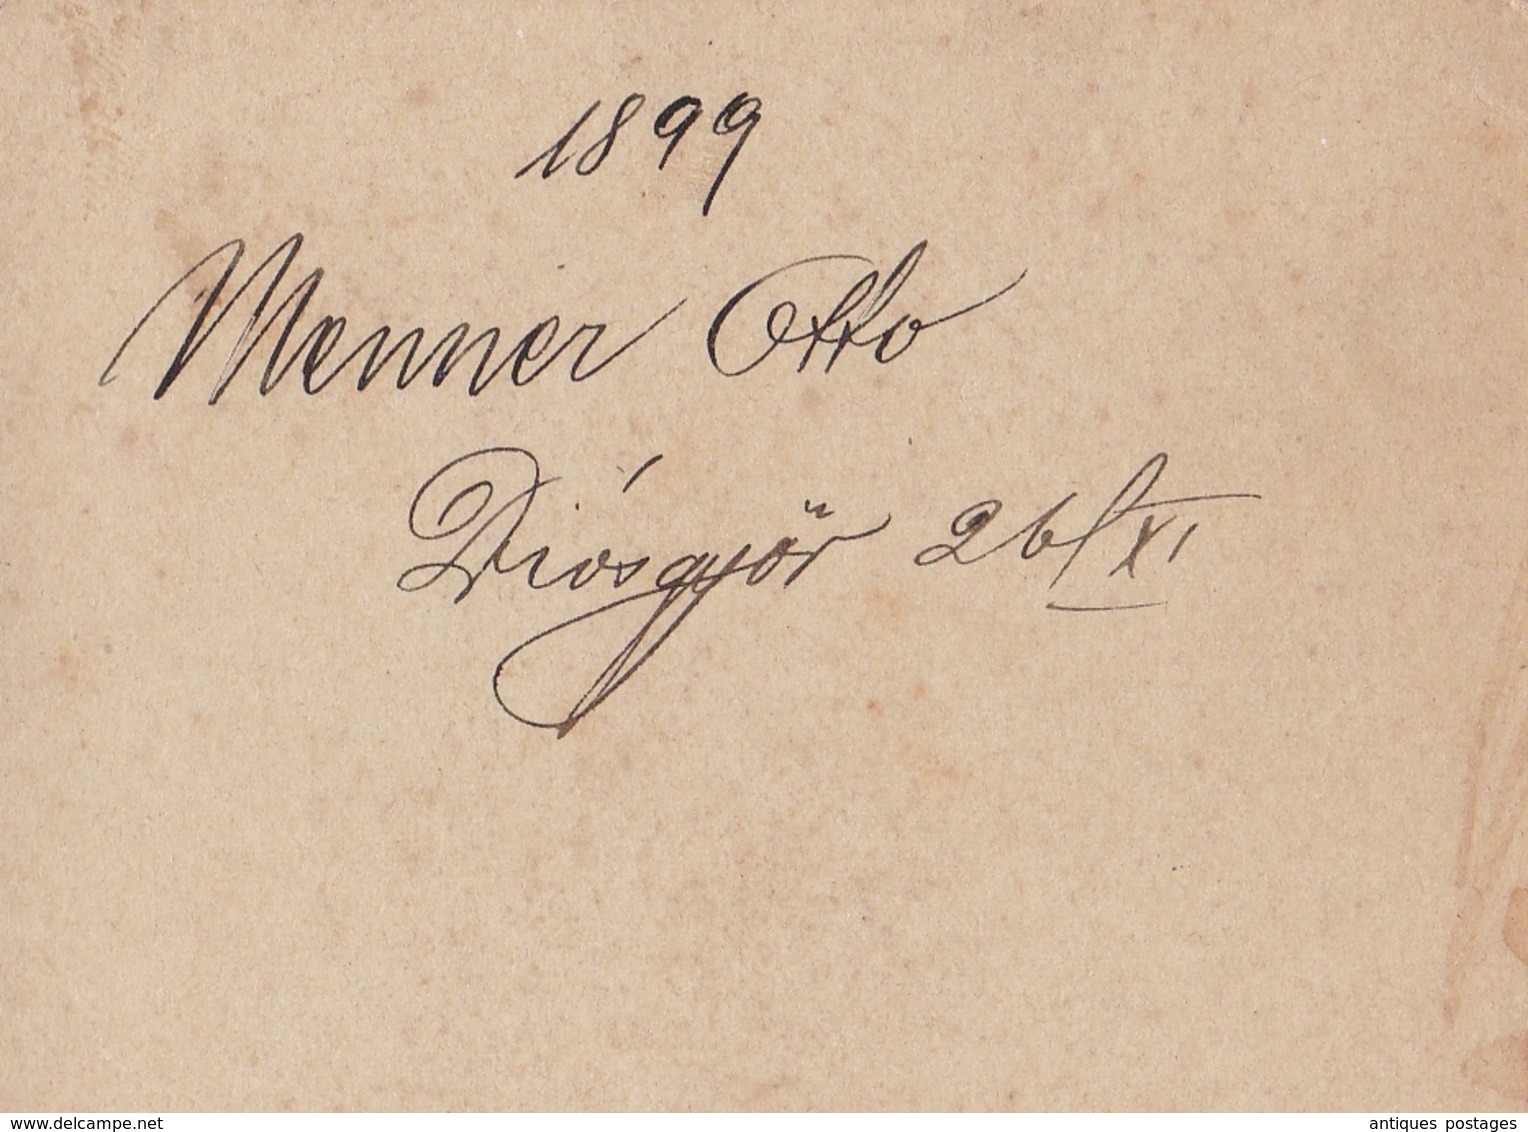 1899
Menner Otto
Diósgyőr 26/XI
delcampe.net
antiques postages